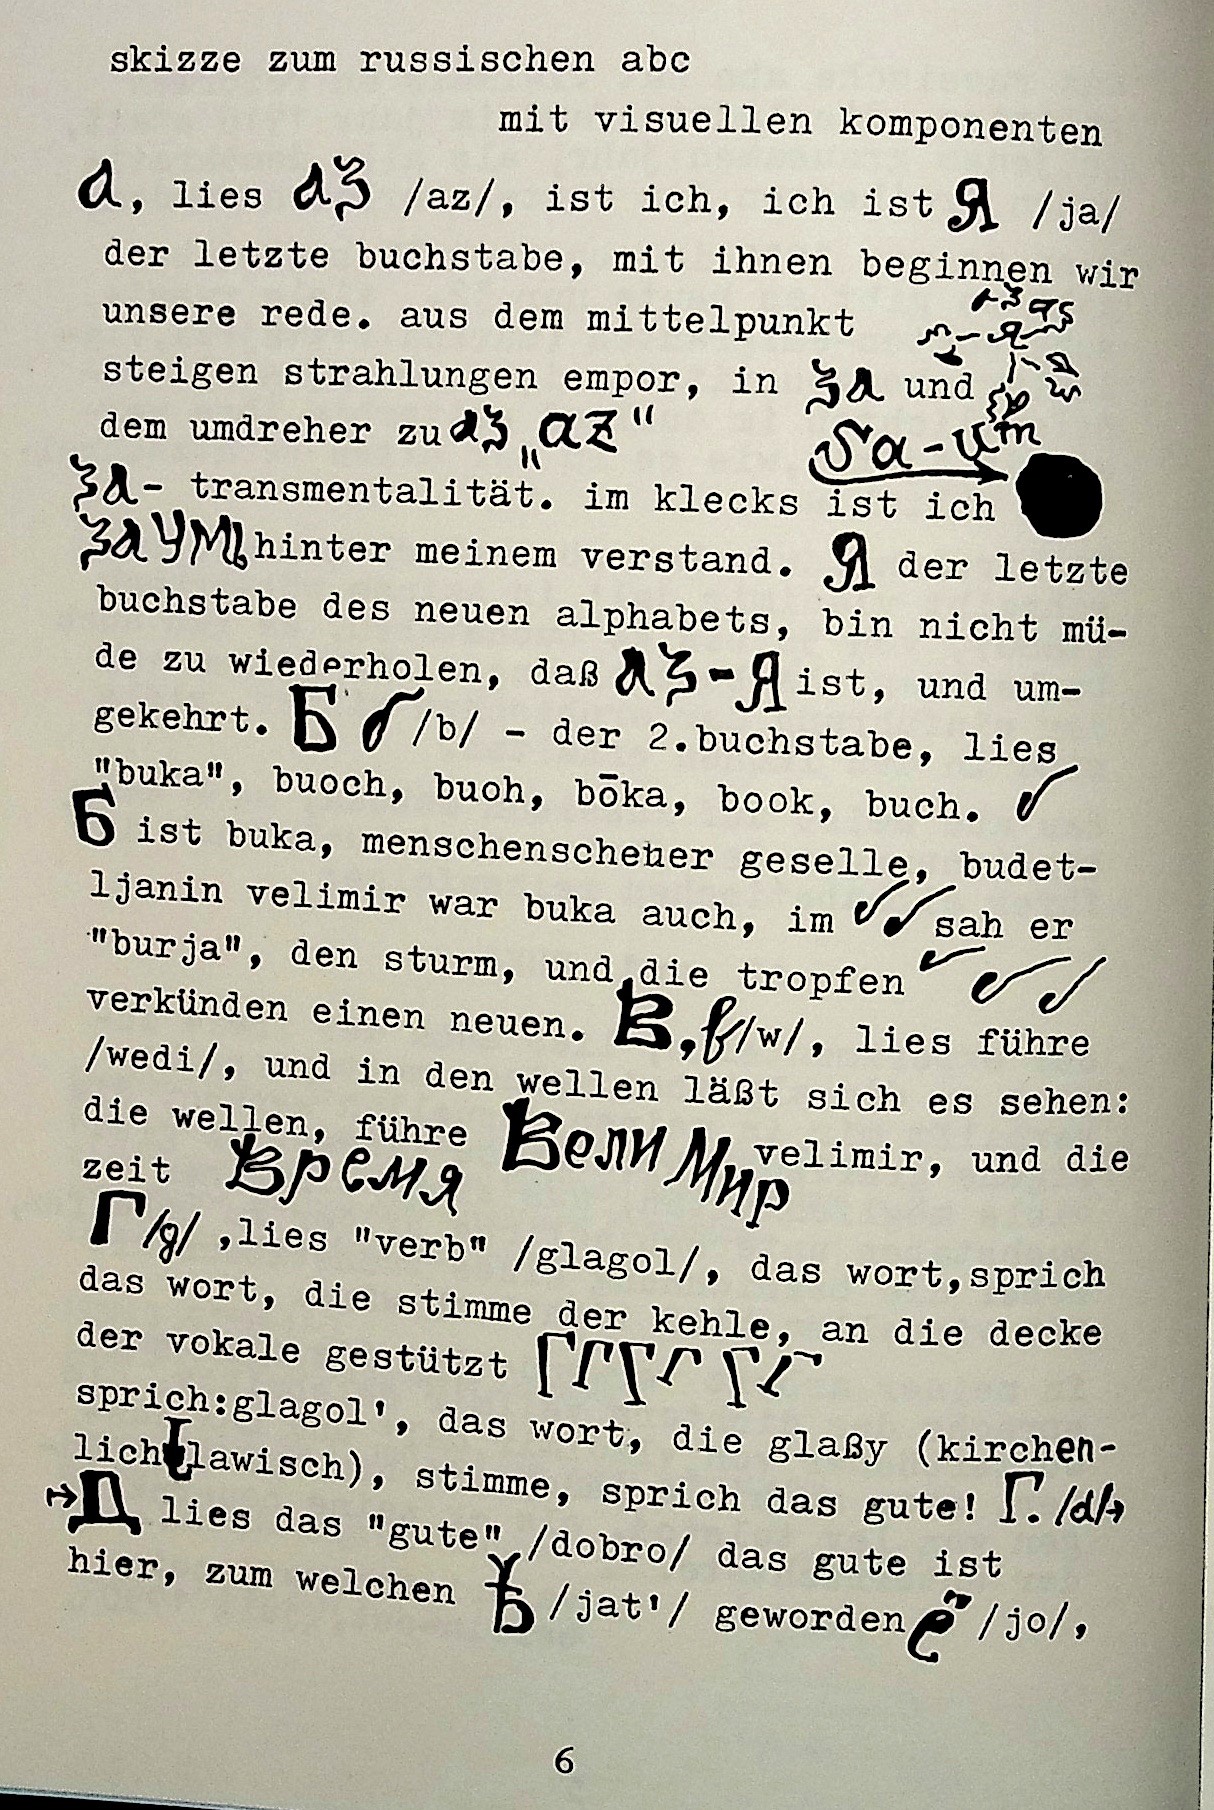 skizze zum russischen abc
mit visuellen komponenten
а, lies аз /az/, ist ich, ich ist Я /ja/
der letzte buchstabe, mit ihnen beginnen wir
unsere rede. aus dem mittelpunkt
steigen strahlungen empor, in за und
dem umdreher zu аз „az"
Sa-um
за- transmentalität. im klecks ist ich
заумь hinter meinem verstand. Я der letzte
buchstabe des neuen alphabets, bin nicht mü-
de zu wiederholen, daß аз-Я ist, und um-
gekehrt. Б б /b/ - der 2.buchstabe, lies
"buka", buoch, buoh, bōka, book, buch.
Б ist buka, menschenscheuer geselle, budet-
ljanin velimir war buka auch, im sah er
"burja", den sturm, und die tropfen
verkünden einen neuen. В,в/w/, lies führe
/wedi/, und in den wellen läßt sich es sehen:
die wellen, führe Велимир velimir, und die
zeit Время
Г/g/ ,lies "verb" /glagol/, das wort,sprich
das wort, die stimme der kehle, an die decke
der vokale gestützt ГГГГГГ
sprich:glagol', das wort, die glaßy (kirchen-
lichslawisch), stimme, sprich das gute! Г. /d/→
↦Д lies das "gute" /dobro/ das gute ist
hier, zum welchen Ѣ /jat'/ geworden ё /jo/,
6